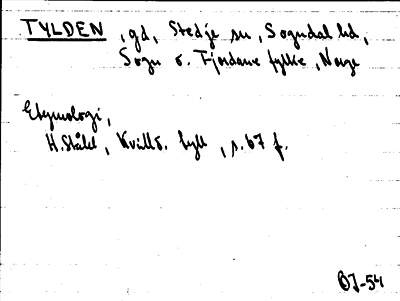 TYLDEN, gd, Stedje sn, Sogndal hd,
Sogn o. Fjordane fylke, Norge
Etymologi,
H. Ståhl, Kvill o. Tyll, s. 67 f.
OJ-54